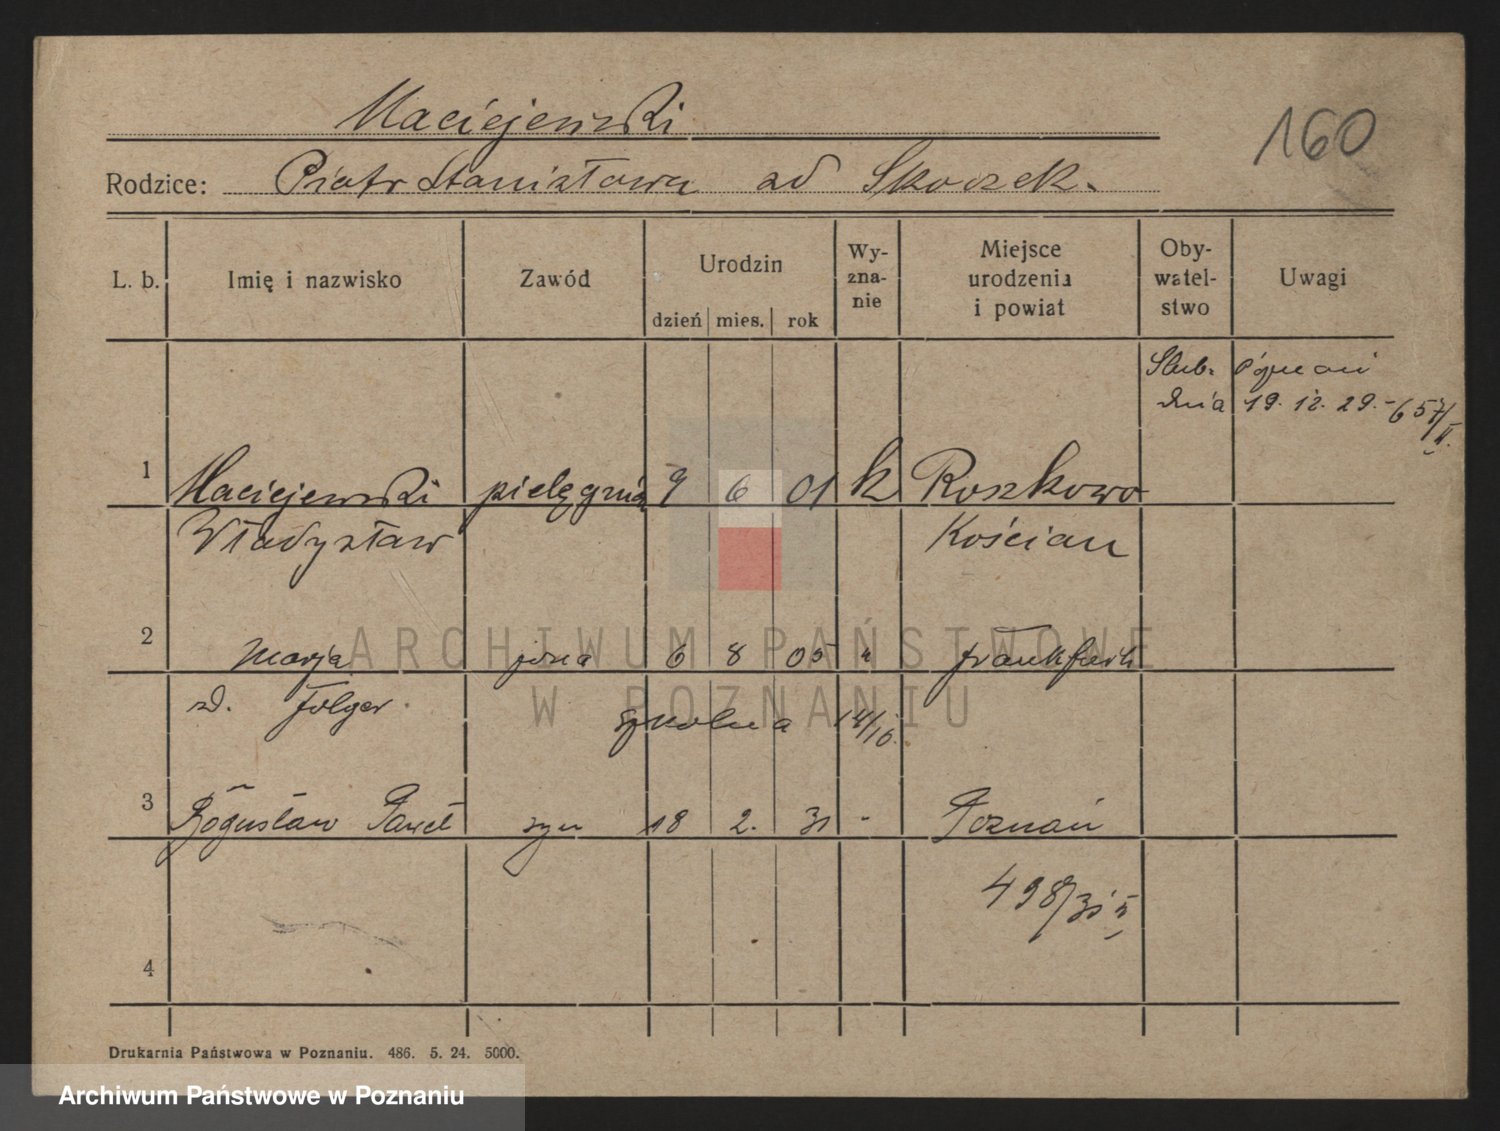 Maciejewski
160
Rodzice: Piotr Stanisława zd Skoczek.
L. b. Imię i nazwisko Zawód Urodzin dzień mies. rok Wy-zna-nie Miejsce urodzenia i powiat Oby-watel-stwo Uwagi
Ślub.
dnia 19. 12. 29. - 657/II.
1 Maciejewski pielęgniarz 9 6 01 k Roszkowo
Władysław Kościan
2 Marja żona 6 8 05 " Frankfurt
zd. Folger
Szkolna 14/16.
3 Bogusław Paweł syn 18 2. 31 - Poznań
498/31 II
4
Drukarnia Państwowa w Poznaniu. 486. 5. 24. 5000.
ARCHIWUM PAŃSTWOWE
W POZNANIU
Archiwum Państwowe w Poznaniu